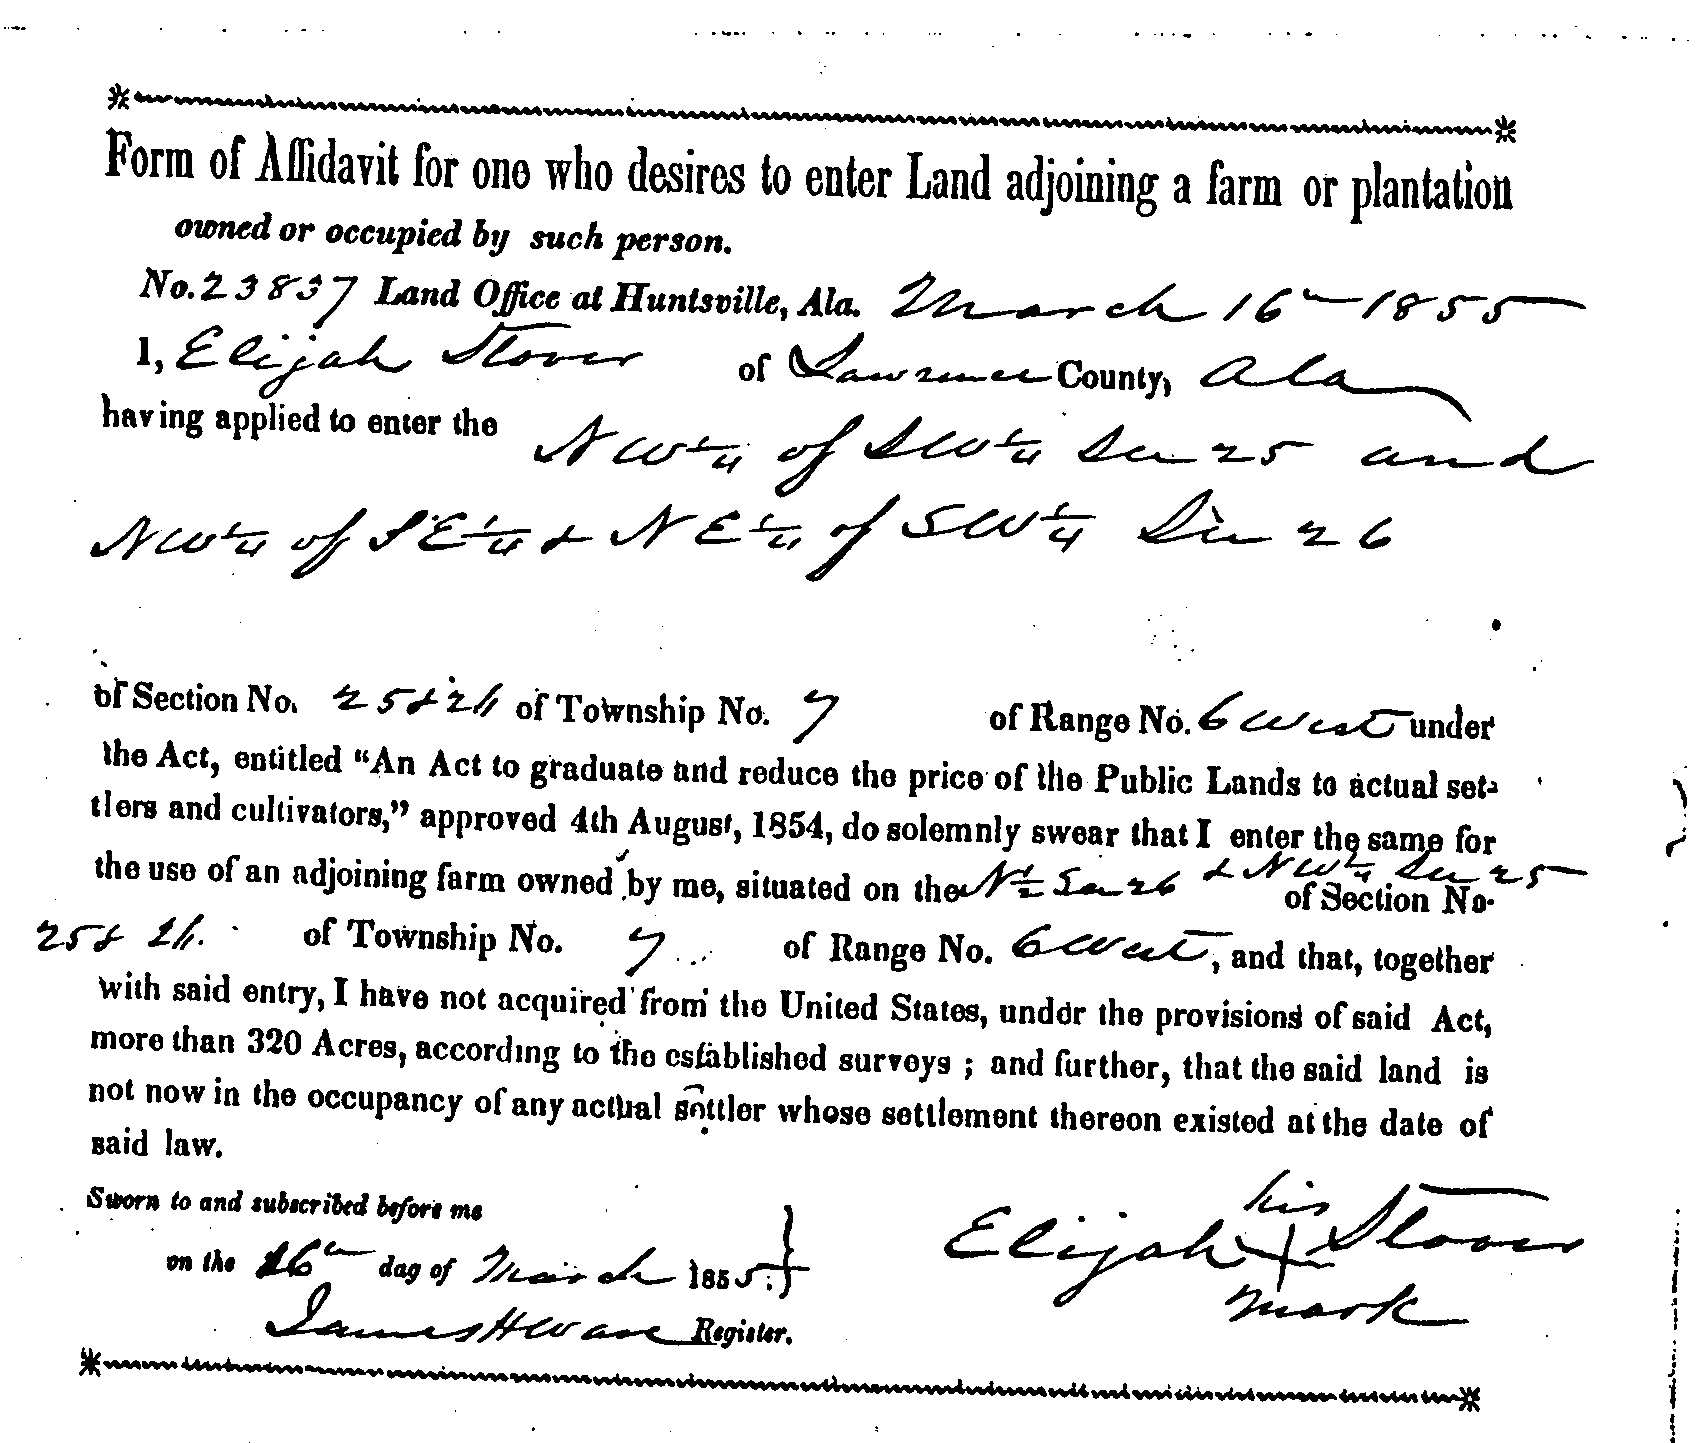 Form of Affidavit for one who desires to enter Land adjoining a farm or plantation
owned or occupied by such person.
No. 23837 Land Office at Huntsville, Ala. March 16th 1855
I, Elijah Stover of Lawrence County, Ala
having applied to enter the NW 1/4 of SW 1/4 Sec 25 and
NW 1/4 of SE 1/4 & NE 1/4 of SW 1/4 Sec 26
of Section No. 25 & 26 of Township No. 7 of Range No. 6 West under
the Act, entitled "An Act to graduate and reduce the price of the Public Lands to actual set-
tlers and cultivators," approved 4th August, 1854, do solemnly swear that I enter the same for
the use of an adjoining farm owned by me, situated on the N 1/2 Sec 26 & NW 1/4 Sec 25 of Section No.
25 & 26. of Township No. 7 of Range No. 6 West, and that, together
with said entry, I have not acquired from the United States, under the provisions of said Act,
more than 320 Acres, according to the established surveys; and further, that the said land is
not now in the occupancy of any actual settler whose settlement thereon existed at the date of
said law.
Sworn to and subscribed before me
on the 16th day of March 1855.
James H Ware Register.
his
Elijah X Stover
mark